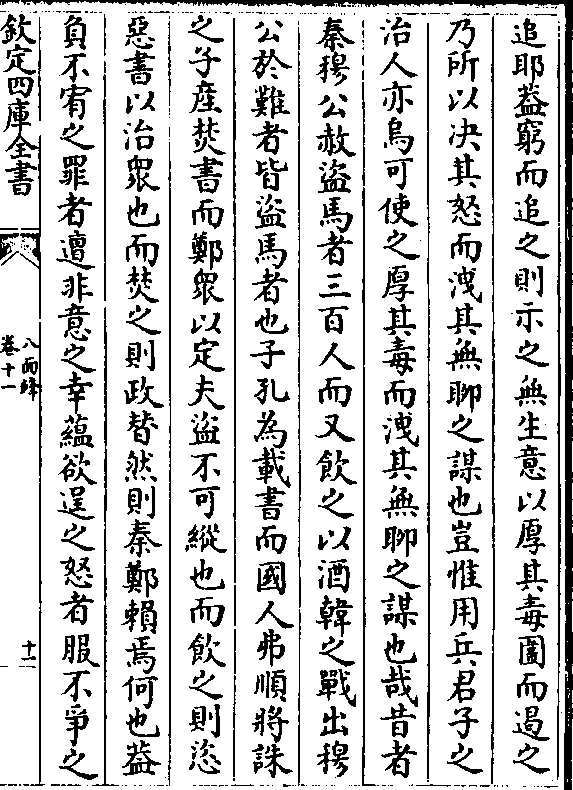 追耶葢窮而追之則示之無生意以厚其毒圍而遏之
乃所以决其怒而洩其無聊之謀也豈惟用兵君子之
治人亦烏可使之厚其毒而洩其無聊之謀也哉昔者
秦穆公赦盜馬者三百人而又飲之以酒韓之戰出穆
公於難者皆盜馬者也子孔為載書而國人弗順將誅
之子產焚書而鄭衆以定夫盜不可縱也而飲之則恣
惡書以治衆也而焚之則政替然則秦鄭賴焉何也葢
負不宥之罪者邅非意之幸蘊欲逞之怒者服不爭之
欽定四庫全書
八面鋒
卷十一
十一